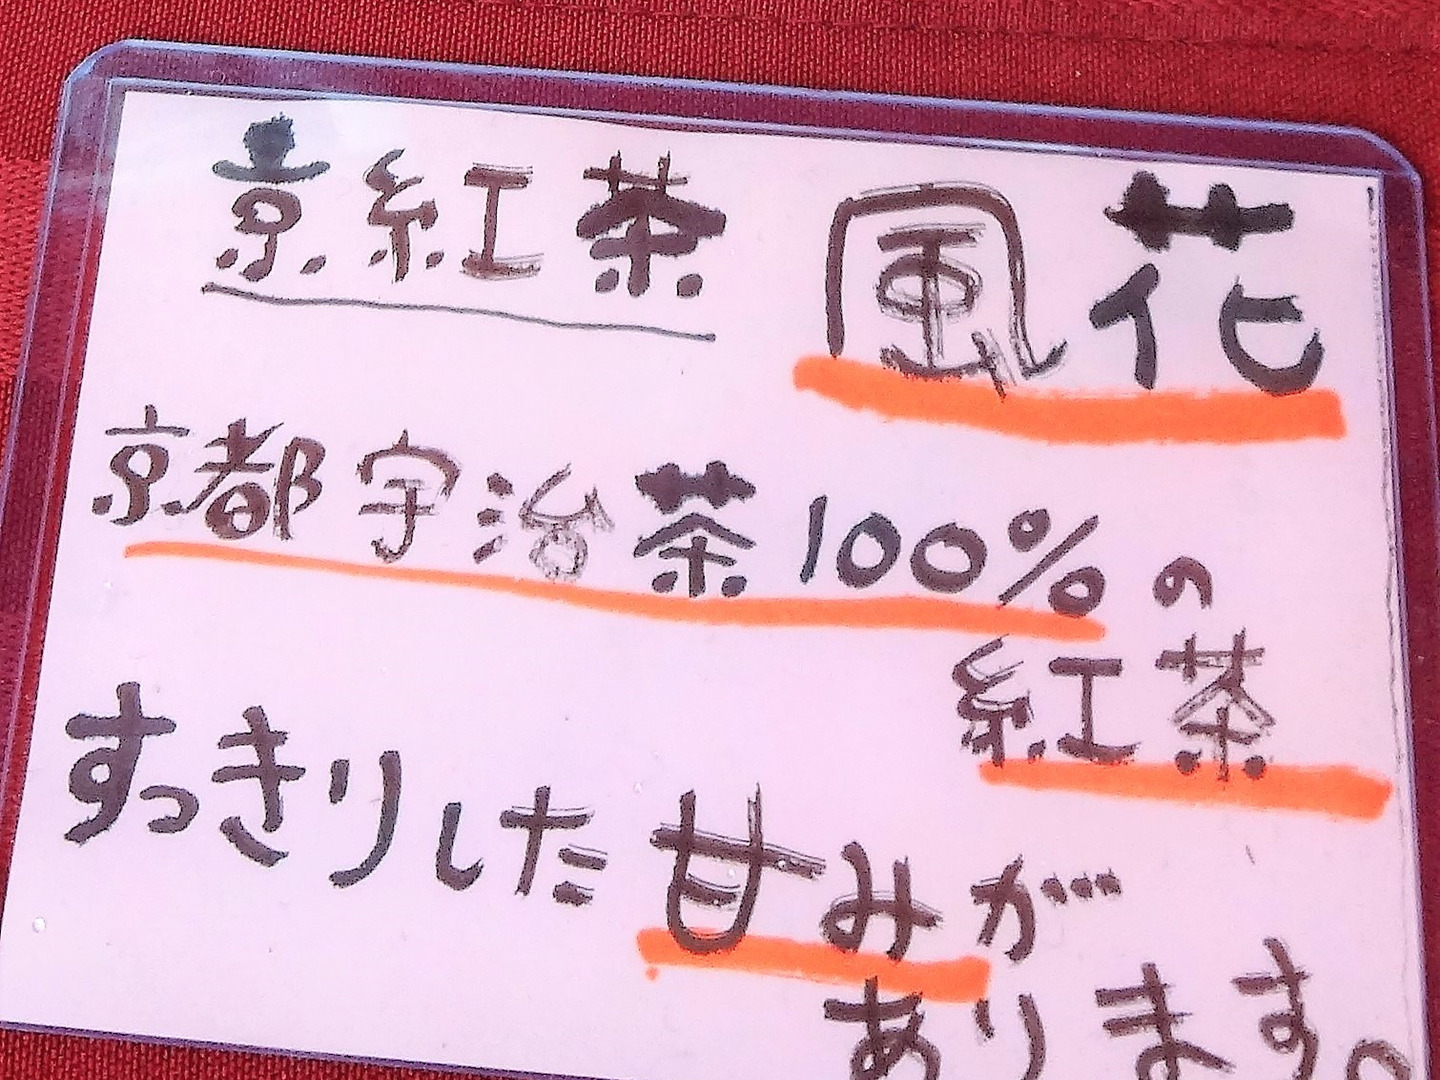 京紅茶 風花
京都宇治茶100%の
紅茶
すっきりした甘みが
あります。